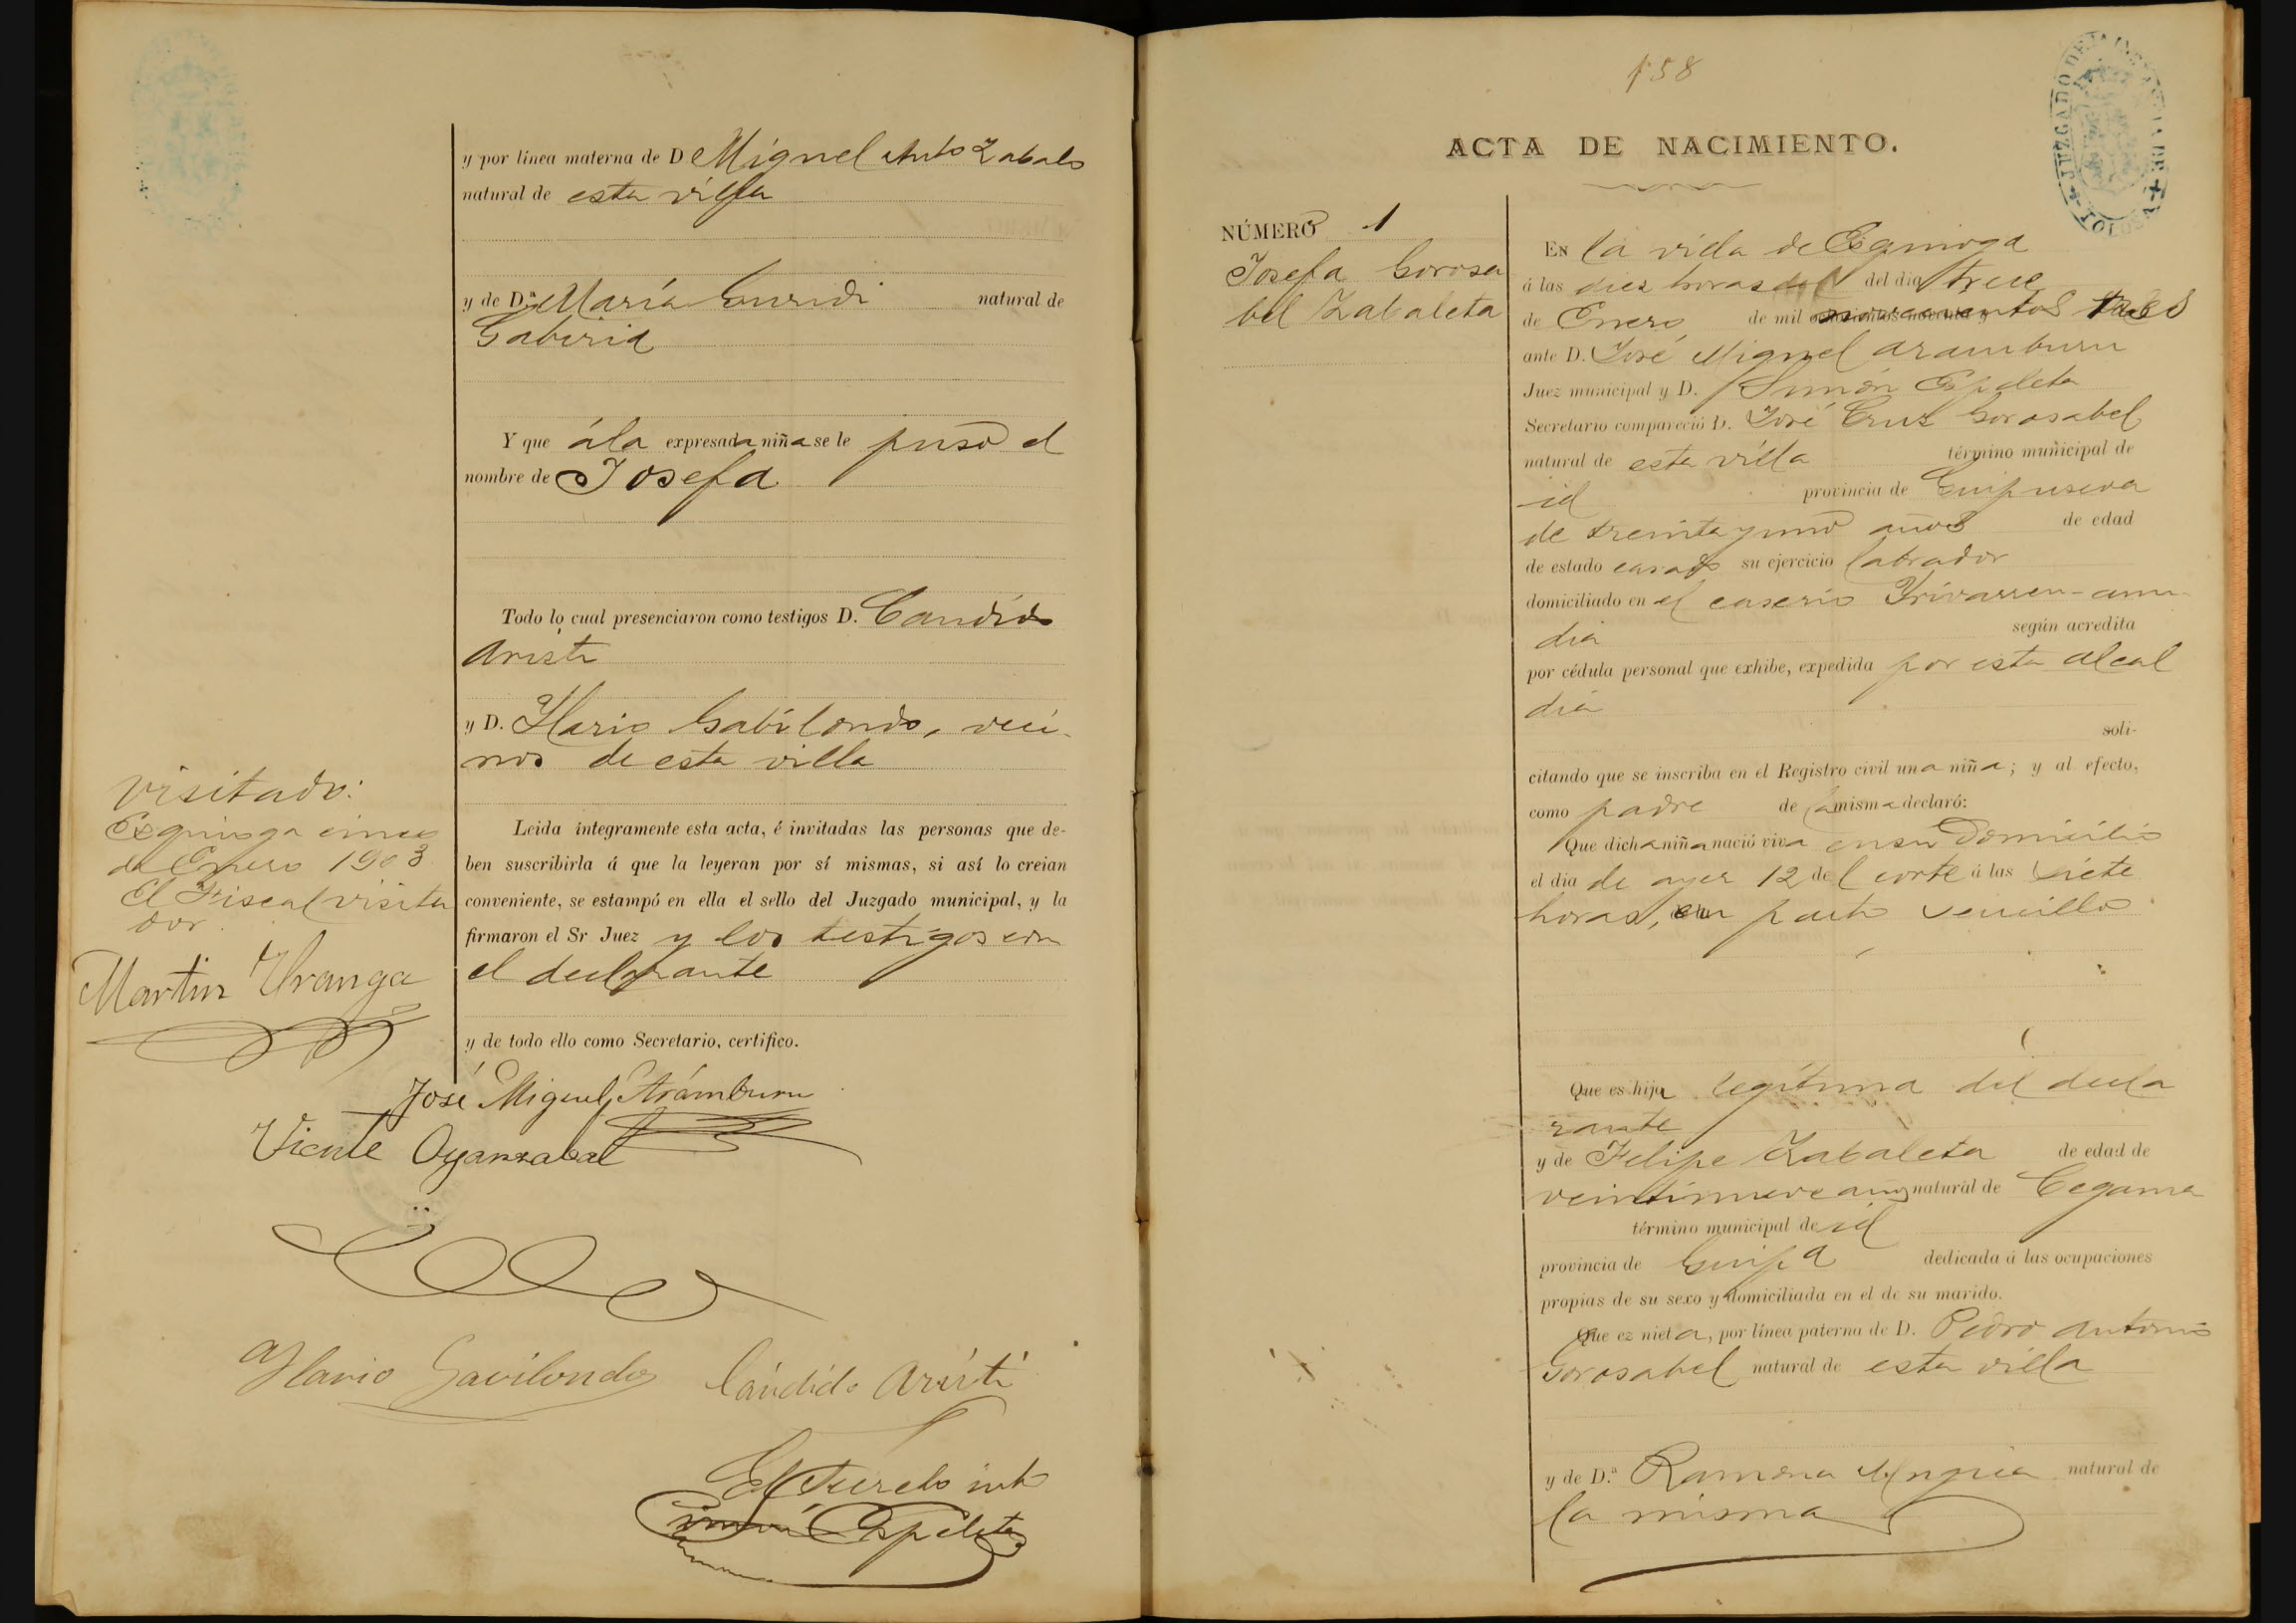 y por línea materna de D Miguel Anto Zabalo
natural de esta villa
y de D.ª María Guridi natural de
Gabiria
Y que á la expresada niña se le puso el
nombre de Josefa
Todo lo cual presenciaron como testigos D. Candido
Aristi
y D. Ylario Gabilondo, veci-
nos de esta villa
Leida íntegramente esta acta, é invitadas las personas que de-
ben suscribirla á que la leyeran por sí mismas, si así lo creian
conveniente, se estampó en ella el sello del Juzgado municipal, y la
firmaron el Sr Juez y los testigos con
el declarante
y de todo ello como Secretario, certifico.
visitado:
Ezquioga cinco
de Enero 1903
El Fiscal visita
dor
Martin Uranga
José Miguel Arámburu
Vicente Oyarzabal
Ylario Gavilondo Cándido Aristi
El Secreto into
Simón Espeleta
158
ACTA DE NACIMIENTO.
JUZGADO DE TOLOSA
NÚMERO 1
Josefa Gorosa
bel Zabaleta
EN la villa de Ezquioga
á las diez horas del dia trece
de Enero de mil novecientos tres
ante D. José Miguel Aramburu
Juez municipal y D. Simón Espeleta
Secretario compareció D. José Cruz Gorosabel
natural de esta villa término municipal de
id provincia de Guipuzcoa
de treinta y uno años de edad
de estado casado su ejercicio labrador
domiciliado en el caserio Yrivarren-aun-
dia según acredita
por cédula personal que exhibe, expedida por esta Alcal
dia
soli-
citando que se inscriba en el Registro civil una niña; y al efecto,
como padre de la misma declaró:
Que dicha niña nació viva en su Domicilio
el dia de ayer 12 del corte á las siete
horas, en parto sencillo
Que es hija legítima del decla
rante
y de Felipe Zabaleta de edad de
veintinueve años natural de Cegama
término municipal de id
provincia de Guipa dedicada á las ocupaciones
propias de su sexo y domiciliada en el de su marido.
Que ez nieta, por línea paterna de D. Pedro Antonio
Gorosabel natural de esta villa
y de D.ª Ramona natural de
la misma